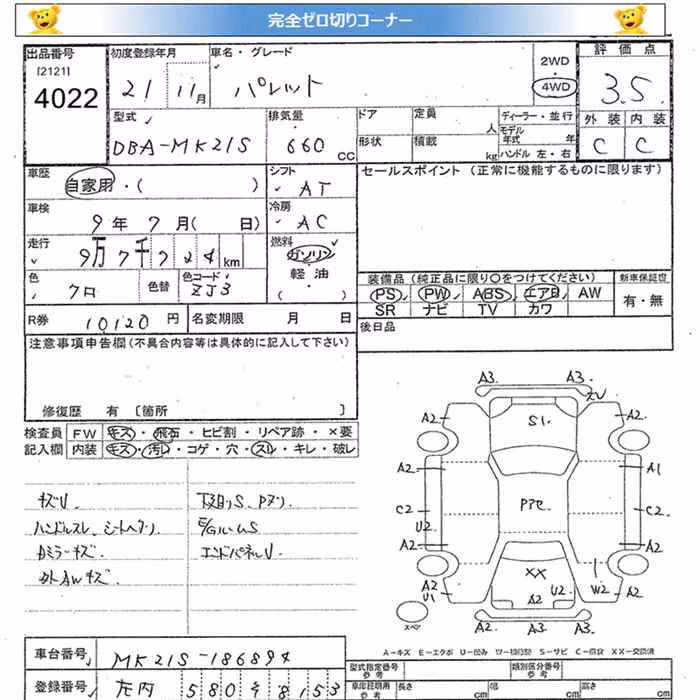 完全ゼロ切りコーナー
出品番号 初度登録年月 車名・グレード 2WD 4WD 評価点
[2121] 4022 21 11月 パレット 3.5
型式 排気量 ドア 定員 人 ディーラー・並行 外装 内装
DBA-MK21S 660 CC 形状 積載 kg モデル年式 年 ハンドル 左・右 C C
車歴 自家用・( ) シフト AT セールスポイント (正常に機能するものに限ります)
車検 9年7月( 日) 冷房 AC
走行 9万7千724km 燃料 ガソリン 軽油 ( ・ )
色 クロ 色替 色コード ZJ3
装備品 (純正品に限り○をつけてください) 新車保証書
PS PW ABS エアB AW 有・無
SR ナビ TV カワ
R券 10120円 名変期限 月 日 後日品
注意事項申告欄(不具合内容等は具体的に記入して下さい)
修復歴 有 [箇所 ]
検査員 FW キズ・飛石・ヒビ割・リペア跡・×要
記入欄 内装 キズ・汚レ・コゲ・穴・スレ・キレ・破レ
キズU
ハンドルスレ
エンドパネルU
外AWキズ
A3 A3
A2 S1 A2
A2 A1
C2 U2 Pアセ C2
A2 A2
A2 U1 XX U2 A2 W2 A2
スペア A2 A3 A3
A-キズ E-エクボ U-凹み W-補修跡 S-サビ C-腐食 XX-交換済
車台番号 MK21S-186894
型式指定番号 参考 類別区分番号 参考
登録番号 庄内 580 8153
車庫証明用 参考 長さ cm 幅 cm 高さ cm